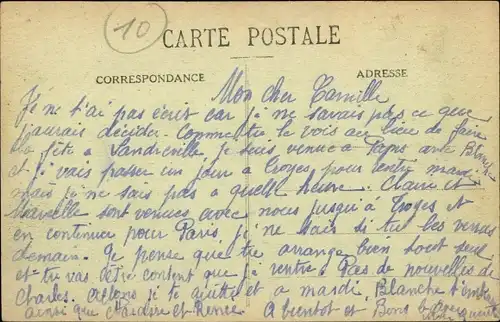 10
CARTE POSTALE
CORRESPONDANCE
ADRESSE
Mon cher Camille
Je ne t'ai pas écrit car je ne savais pas ce que
j'aurais décider. Comme tu le vois au lieu de faire
la fête a Landreville, je suis venue a Paris avec Blanche
et je vais passer un jour a Troyes pour rentré mardi
mais je ne sais pas a quelle heure. Claire et
Marcelle sont venues avec nous jusqu'à Troyes et
en continue pour Paris je ne sais si tu les verras
demain. Je pense que tu arrange bien tout seul
et tu vas être content que je rentre. Pas de nouvelles de
Charles. Allons je te quitte et a mardi. Blanche t'embrasse
ainsi que et Renée. A bientôt et Bons